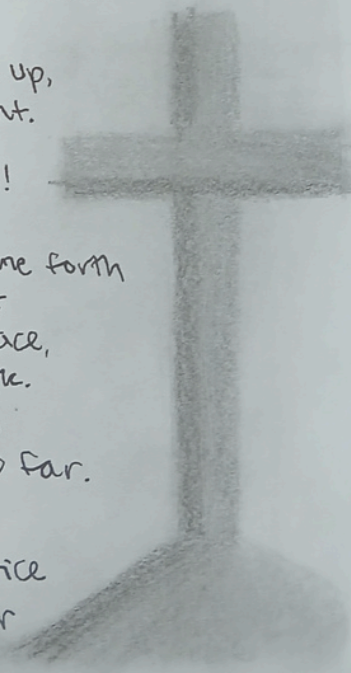 up,
nt.
!
me forth
ace,
k.
far.
ice
r